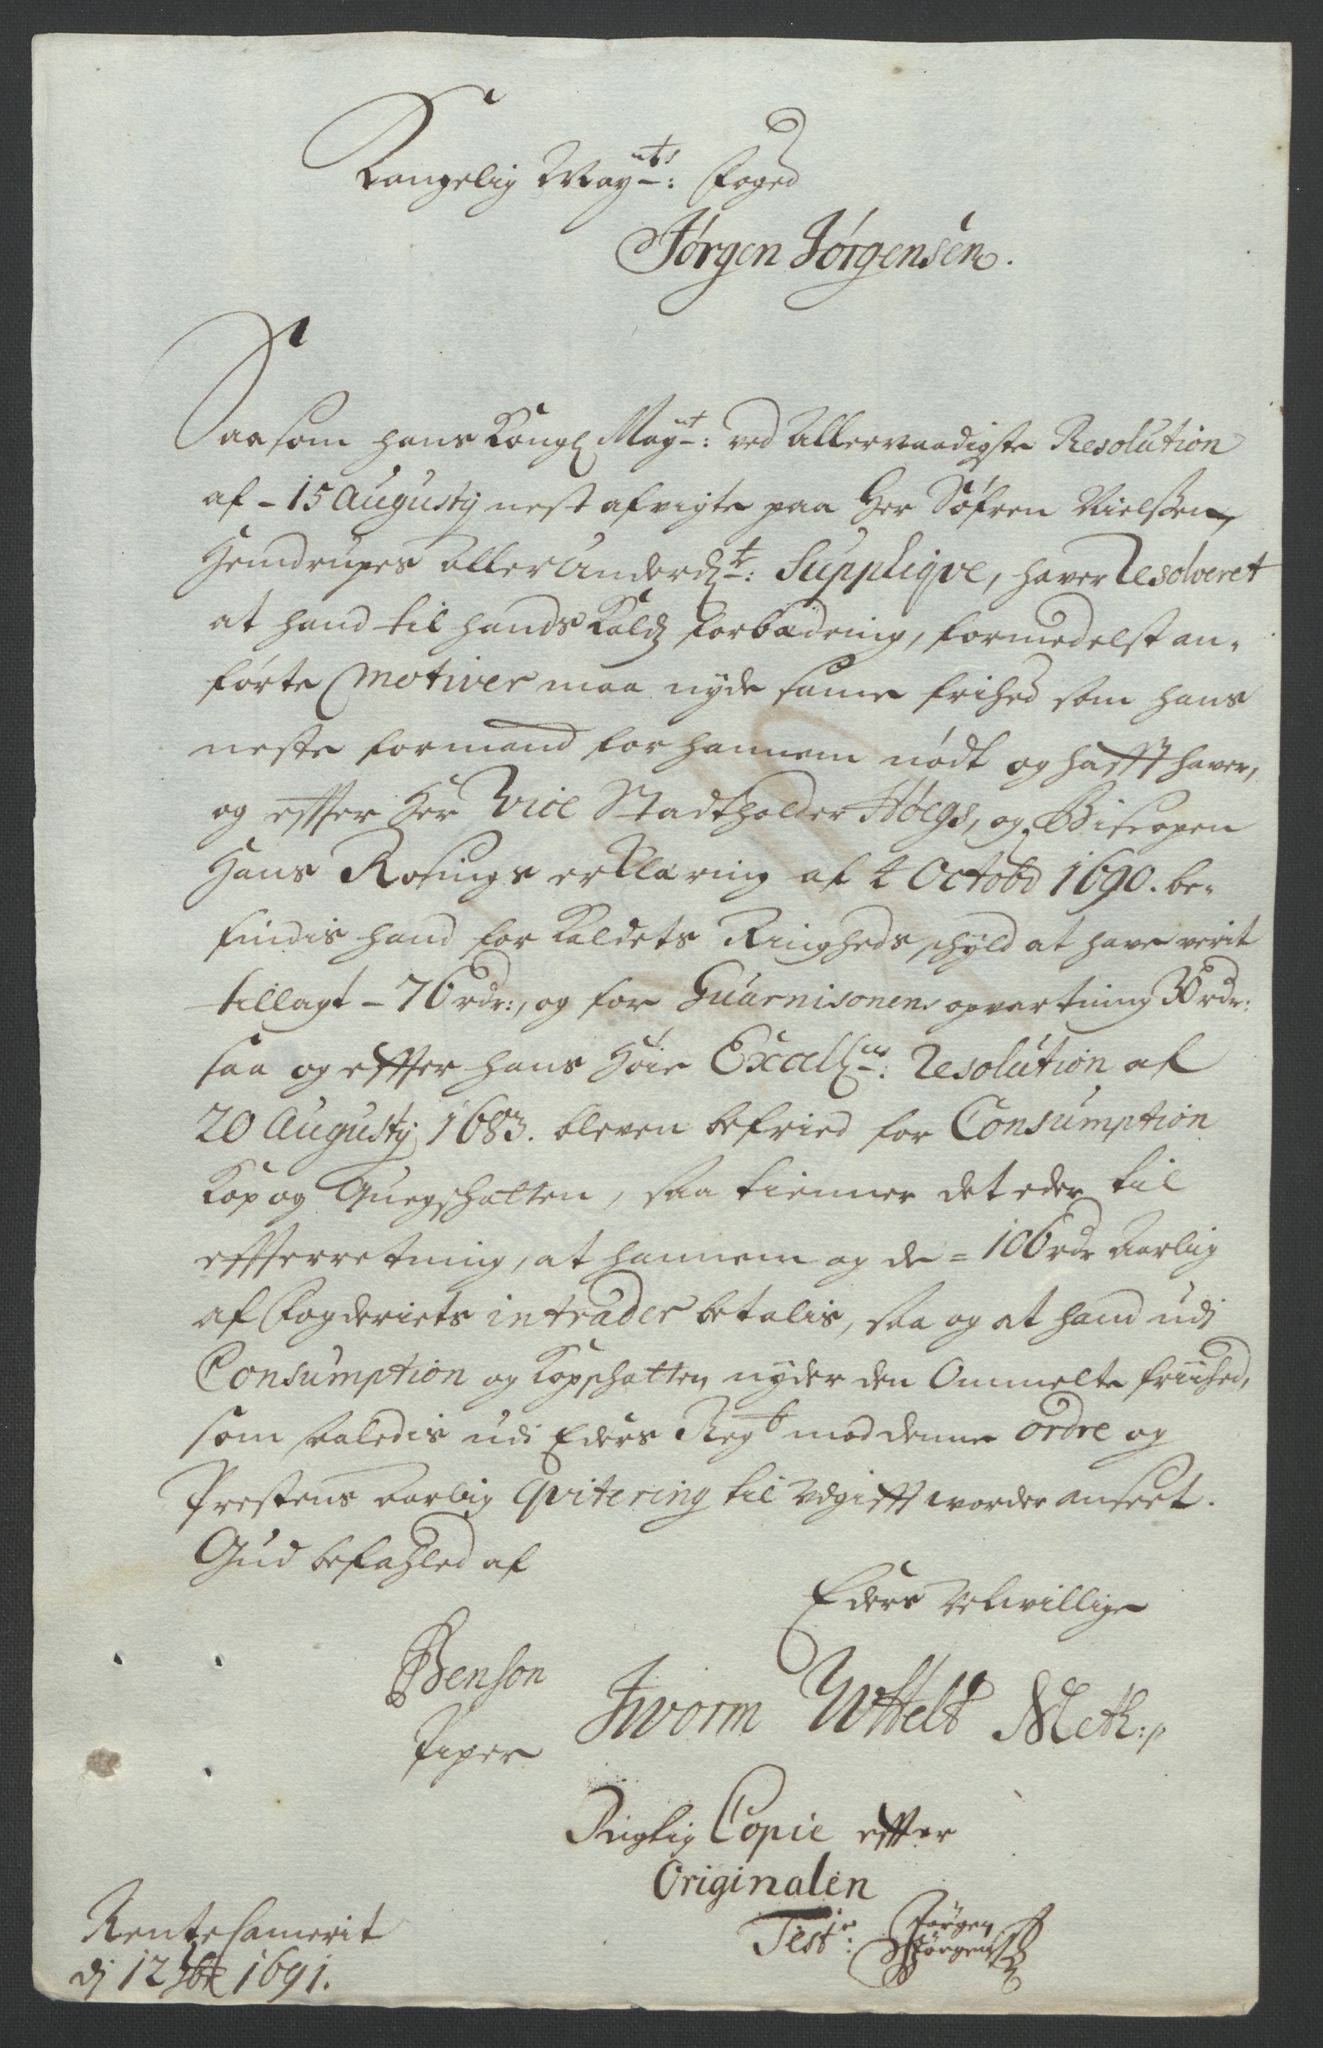 Kongelig Mayts: Foged
Jørgen Jørgensen.
Saasom hans Kongl Mayt: ved Allernaadigste Resolution
af - 15 Augustij nest afvigte paa Her Søfren Nielsen
Hemdrupes allerunderdte: Supplique, haver Resolveret
at hand til hands Kaldz forbædring, formedelst an-
førte Motiver maa nyde samme frihed som hans
neste formand for hannem nødt og hafft haver,
og effter Her Vice Stadtholder Høegs, og Biscopen
Hans Rosings erklæring af 4 Octobr 1690. be-
findis hand for Kaldets Ringheds schyld at have verit
tillagt - 76 rdr:, og for Guarnisonens opvartning 30 rdr:
saa og effter hans Høie Excellns: Resolution af
20 Augustij 1683. bleven befried for Consumption
Kop og Quegschatten, saa tienner det eder til
effterretning, at hannem og de = 106 rdr Aarlig
af Fogderiets intrader betalis, saa og at hand udi
Consumption og Kopschatten nyder den Ommelte friihed,
som saaledis udi Eders Regb mod denne ordre og
Prestens Aarlig Qvitering til Udgifft worder anseet.
Gud befahled af
Eders Velvillige
Benson Iworm WHelt Meth:
Piper
Rigtig Copie effter
Originalen
Test: Jørgen
Jørgensen
Rente Camerit
dj 12 7br 1691.